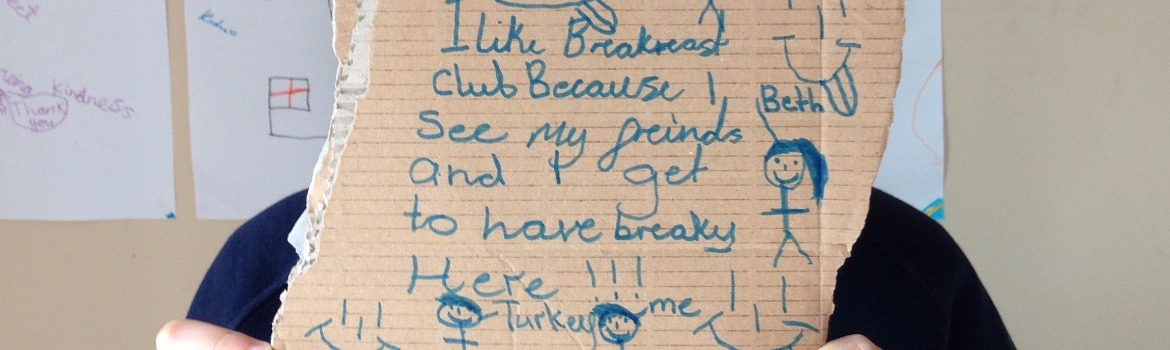 I like Breakreast
club Because I
see my freinds
and I get
to have breaky
Here !!!
Beth
Turkey
me
Kindness
kindness
Thank
you